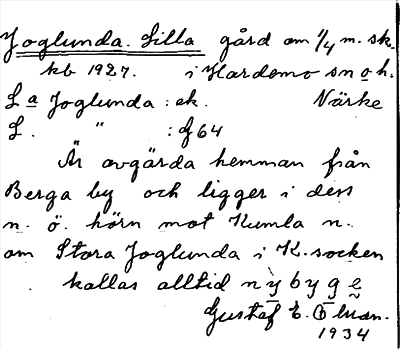 Joglunda. Lilla gård om 1/4 m. sk.
kb 1927. i Hardemo sn o h.
L a Joglunda : ek. Närke
L. " : G 64
Är avgärda hemman från
Berga by och ligger i dess
n. ö. hörn mot Kumla n.
om Stora Joglunda i K. socken
kallas alltid nybyge
Gustaf E.
1934